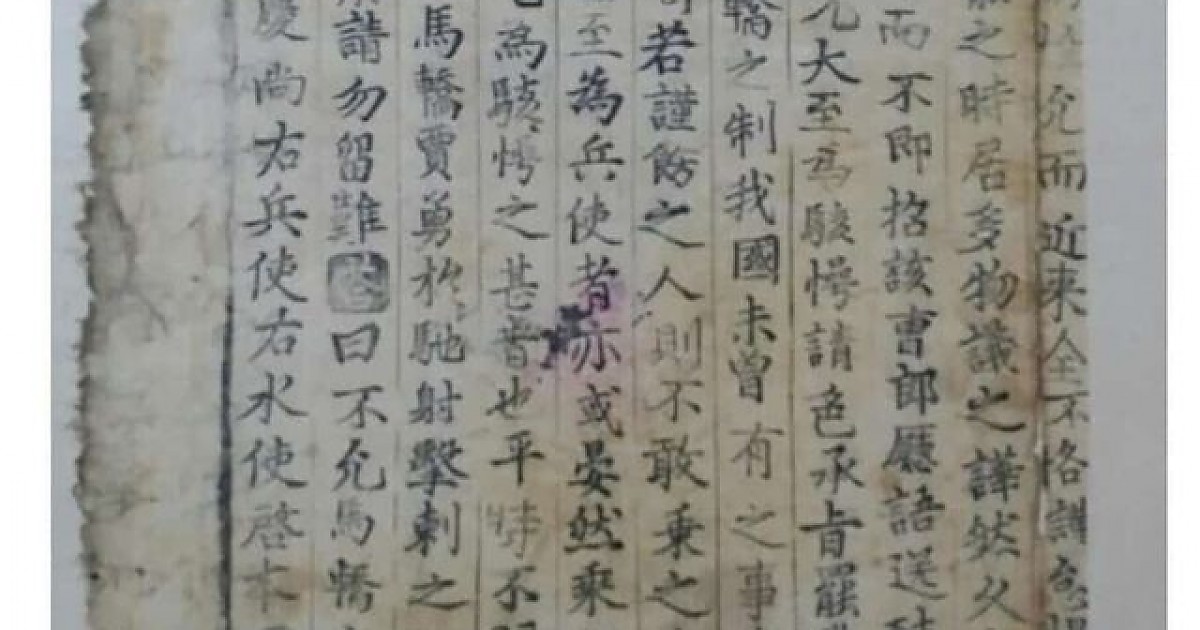 允而近来全不恪謹
之時居多物議之譁然久
而不即招該曹郎廳語送
大至為駭愕請色承旨罷
轎之制我國未曾有之事
若謹飭之人則不敢乗之
至為兵使者亦或晏然乘
為駭愕之甚者也平時不
馬轎賈勇於馳射擊刺之
請勿留難啓曰不允馬轎
慶尚右兵使右水使啓本